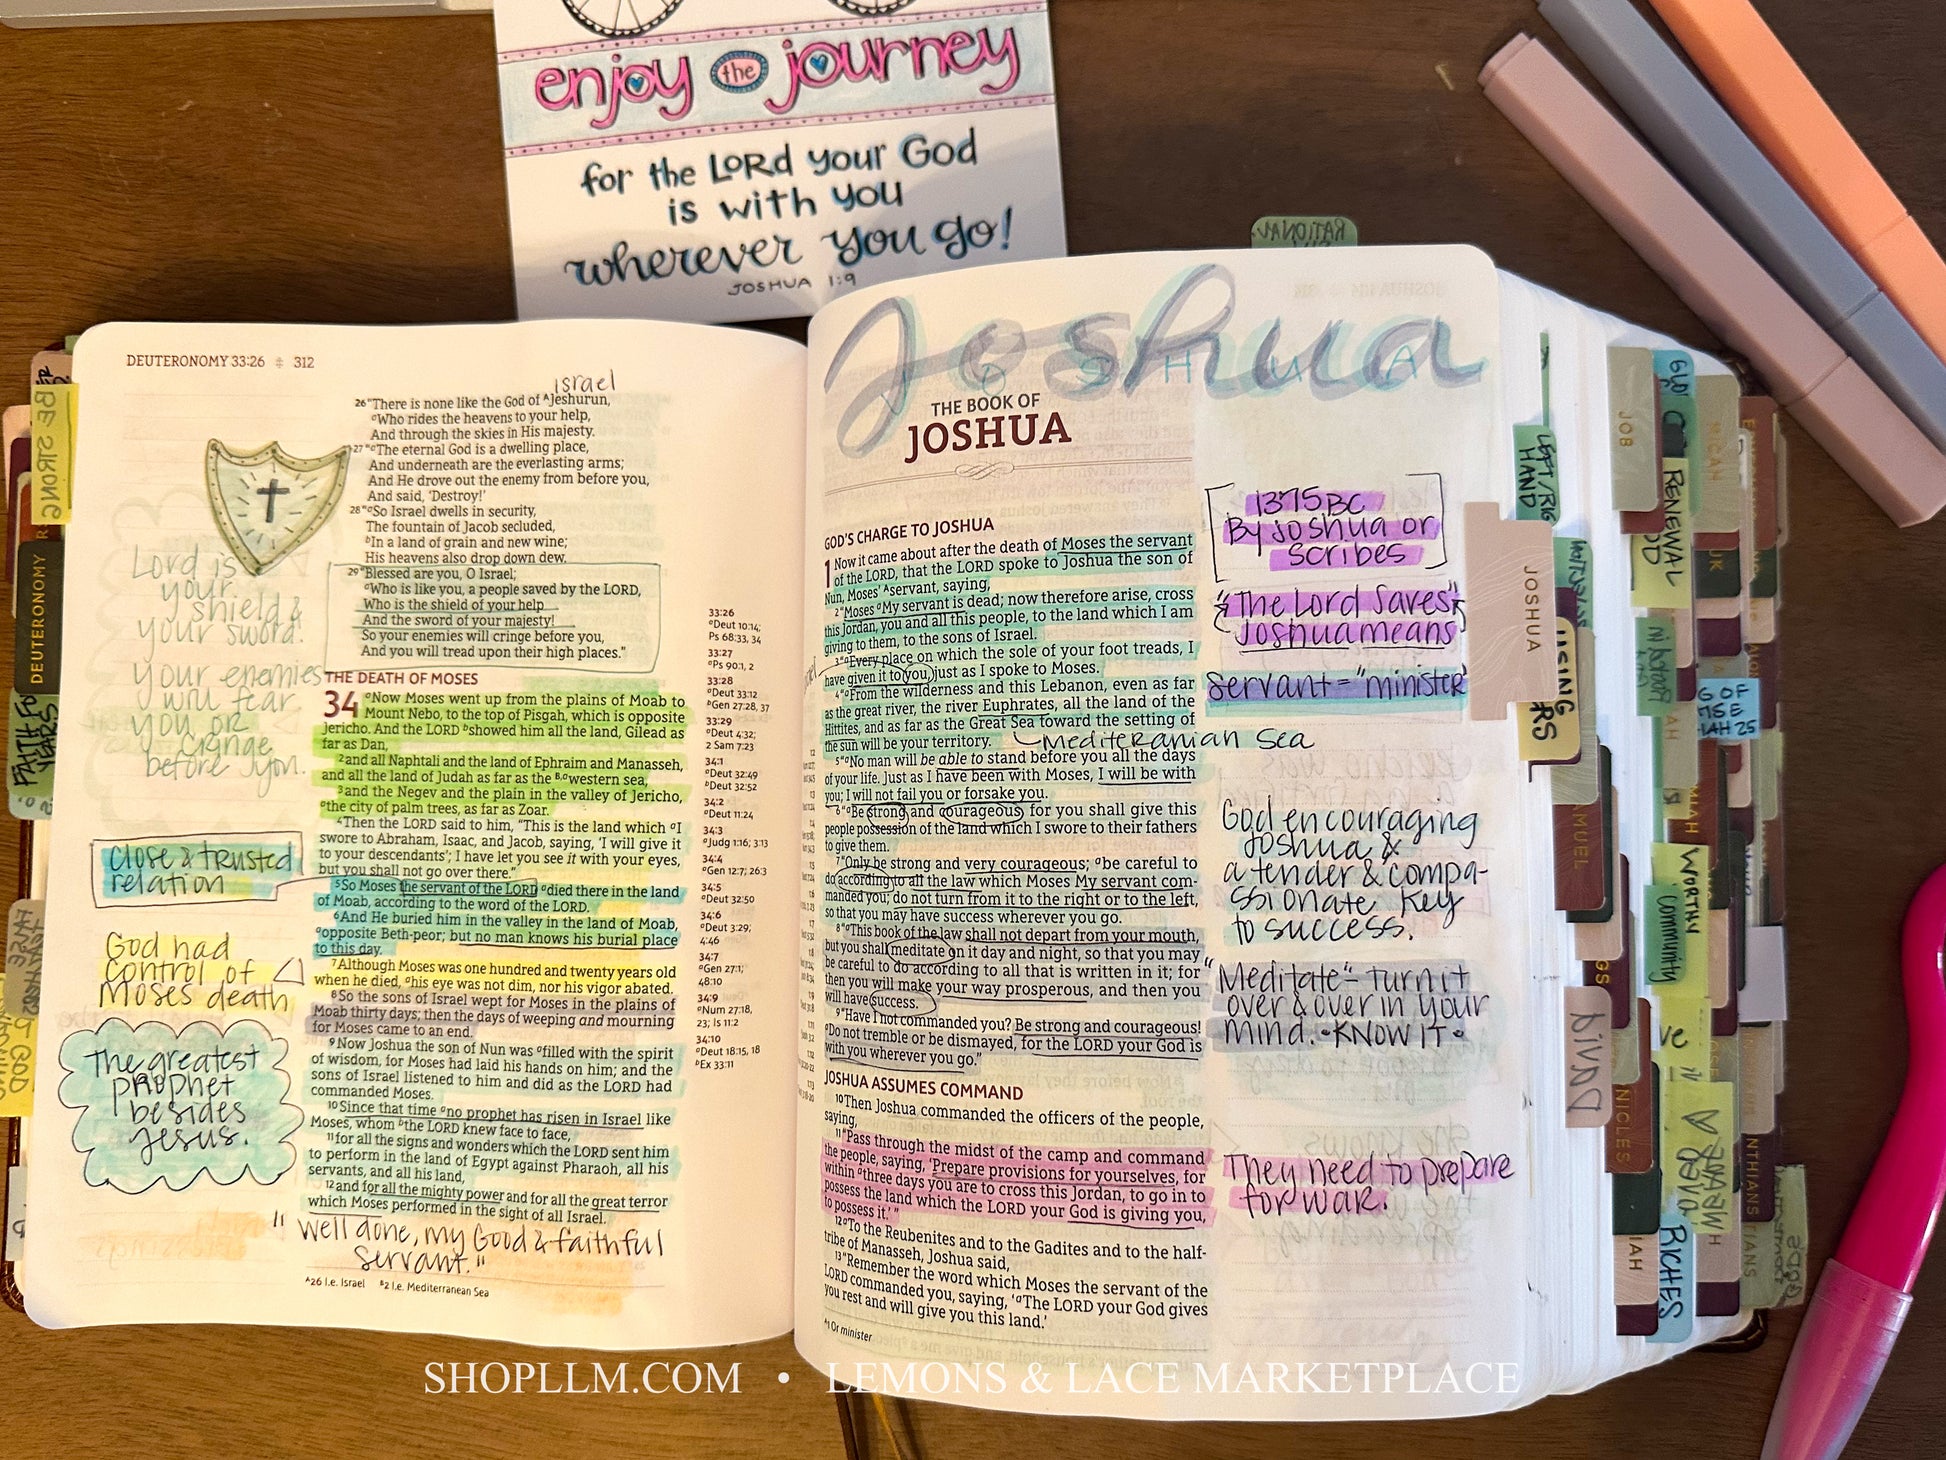 enjoy the journey
for the LORD your God
is with you
wherever you go!
JOSHUA 1:9
DEUTERONOMY 33:26 312
israel
26"There is none like the God of AJeshurun,
aWho rides the heavens to your help,
And through the skies in His majesty.
27"aThe eternal God is a dwelling place,
And underneath are the everlasting arms;
And He drove out the enemy from before you,
And said, 'Destroy!'
28"aSo Israel dwells in security,
The fountain of Jacob secluded,
bIn a land of grain and new wine;
His heavens also drop down dew.
29"Blessed are you, O Israel;
aWho is like you, a people saved by the LORD,
Who is the shield of your help
And the sword of your majesty!
So your enemies will cringe before you,
And you will tread upon their high places."
THE DEATH OF MOSES
34 aNow Moses went up from the plains of Moab to
Mount Nebo, to the top of Pisgah, which is opposite
Jericho. And the LORD bshowed him all the land, Gilead as
far as Dan,
2and all Naphtali and the land of Ephraim and Manasseh,
and all the land of Judah as far as the B,awestern sea,
3and the Negev and the plain in the valley of Jericho,
athe city of palm trees, as far as Zoar.
4Then the LORD said to him, "This is the land which aI
swore to Abraham, Isaac, and Jacob, saying, 'I will give it
to your descendants'; I have let you see it with your eyes,
but you shall not go over there."
5So Moses the servant of the LORD adied there in the land
of Moab, according to the word of the LORD.
6And He buried him in the valley in the land of Moab,
aopposite Beth-peor; but no man knows his burial place
to this day.
7Although Moses was one hundred and twenty years old
when he died, ahis eye was not dim, nor his vigor abated.
8So the sons of Israel wept for Moses in the plains of
Moab thirty days; then the days of weeping and mourning
for Moses came to an end.
9Now Joshua the son of Nun was afilled with the spirit
of wisdom, for Moses had laid his hands on him; and the
sons of Israel listened to him and did as the LORD had
commanded Moses.
10Since that time ano prophet has risen in Israel like
Moses, whom bthe LORD knew face to face,
11for all the signs and wonders which the LORD sent him
to perform in the land of Egypt against Pharaoh, all his
servants, and all his land,
12and for all the mighty power and for all the great terror
which Moses performed in the sight of all Israel.
" well done, my Good & faithful
servant."
A26 I.e. Israel B2 I.e. Mediterranean Sea
Lord is
your
shield &
your sword.
your enemies
will fear
you or
cringe
before you.
close & trusted
relation
God had
control of
Moses death
The greatest
prophet
besides
Jesus.
33:26
aDeut 10:14;
Ps 68:33, 34
33:27
aPs 90:1, 2
33:28
aDeut 33:12
bGen 27:28, 37
33:29
aDeut 4:32;
2 Sam 7:23
34:1
aDeut 32:49
bDeut 32:52
34:2
aDeut 11:24
34:3
aJudg 1:16; 3:13
34:4
aGen 12:7; 26:3
34:5
aDeut 32:50
34:6
aDeut 3:29;
4:46
34:7
aGen 27:1;
48:10
34:9
aNum 27:18,
23; Is 11:2
34:10
aDeut 18:15, 18
bEx 33:11
Joshua
JOSHUA
THE BOOK OF
JOSHUA
GOD'S CHARGE TO JOSHUA
1 Now it came about after the death of Moses the servant
of the LORD, that the LORD spoke to Joshua the son of
Nun, Moses' Aservant, saying,
2"Moses aMy servant is dead; now therefore arise, cross
this Jordan, you and all this people, to the land which I am
giving to them, to the sons of Israel.
3"aEvery place on which the sole of your foot treads, I
have given it to you, just as I spoke to Moses.
4"aFrom the wilderness and this Lebanon, even as far
as the great river, the river Euphrates, all the land of the
Hittites, and as far as the Great Sea toward the setting of
the sun will be your territory.
Mediteranian Sea
5"aNo man will be able to stand before you all the days
of your life. Just as I have been with Moses, I will be with
you; I will not fail you or forsake you.
6"aBe strong and courageous, for you shall give this
people possession of the land which I swore to their fathers
to give them.
7"Only be strong and very courageous; abe careful to
do according to all the law which Moses My servant com-
manded you; do not turn from it to the right or to the left,
so that you may have success wherever you go.
8"aThis book of the law shall not depart from your mouth,
but you shall meditate on it day and night, so that you may
be careful to do according to all that is written in it; for
then you will make your way prosperous, and then you
will have success.
9"Have I not commanded you? Be strong and courageous!
aDo not tremble or be dismayed, for the LORD your God is
with you wherever you go."
JOSHUA ASSUMES COMMAND
10Then Joshua commanded the officers of the people,
saying,
11"Pass through the midst of the camp and command
the people, saying, 'Prepare provisions for yourselves, for
within athree days you are to cross this Jordan, to go in to
possess the land which the LORD your God is giving you,
to possess it.'"
12aTo the Reubenites and to the Gadites and to the half-
tribe of Manasseh, Joshua said,
13"Remember the word which Moses the servant of the
LORD commanded you, saying, 'aThe LORD your God gives
you rest and will give you this land.'
A1 Or minister
1375 BC
By Joshua or
Scribes
"The Lord Saves"
Joshua means
servant = "minister"
God encouraging
Joshua &
a tender & compa-
ssionate key
to success.
"Meditate" - turn it
over & over in your
mind. • KNOW IT •
They need to prepare
for war.
BE STRONG
DEUTERONOMY
RATIONAL
LEFT/RIG
HAND
JOSHUA
JOB
RENEWAL
WORTHY
Community
David
RICHES
SHOPLLM.COM • LEMONS & LACE MARKETPLACE